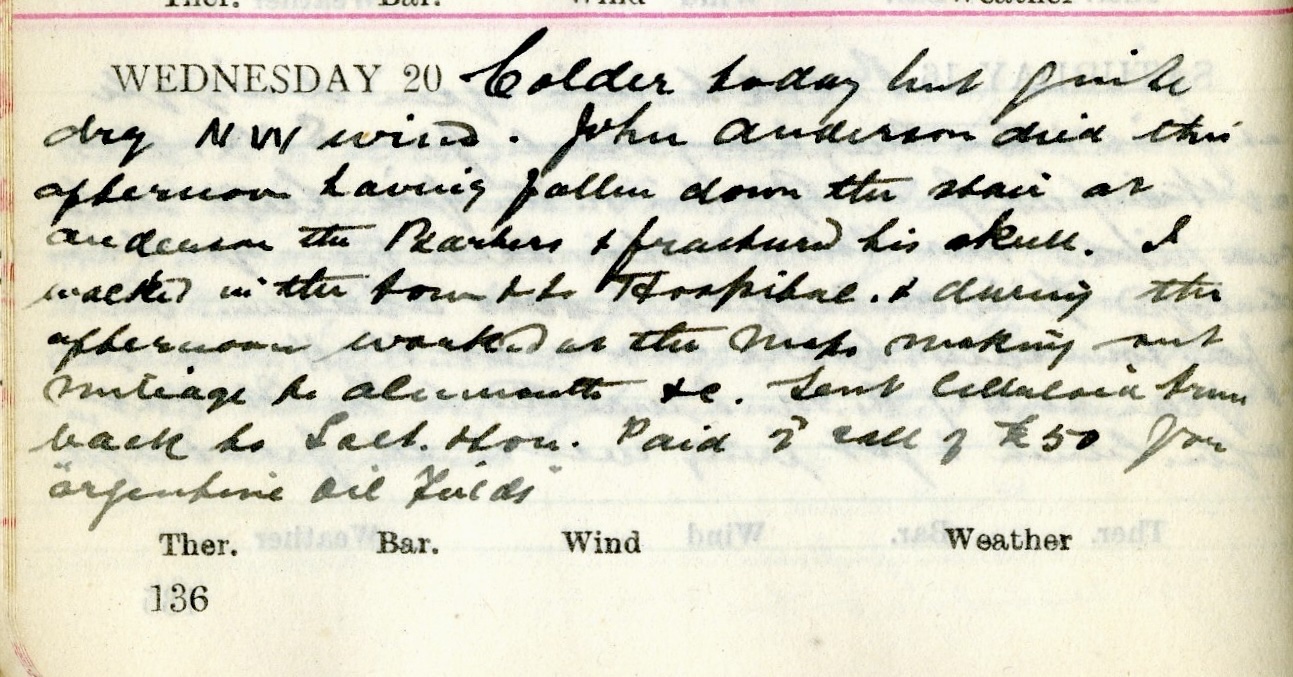 Ther. Bar. Wind Weather
WEDNESDAY 20 Colder today but quite
dry NW wind. John Anderson died this
afternoon having fallen down the stair at
Anderson the Barbers & fractured his skull. I
walked in the town & to Hospital. & during the
afternoon worked at the Maps making out
mileage to Alnmouth &c. Sent back to
Paid call of £50 for
"Argentine Oil Fields"
Ther. Bar. Wind Weather
136